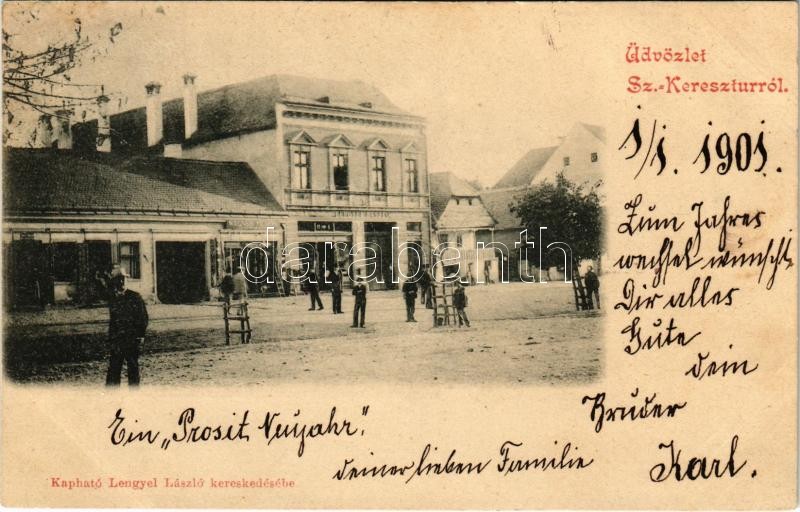 Üdvözlet
Sz.-Kereszturról.
1/1. 1901.
Zum Jahres
wechsel wünscht
Dir alles
Gute
dein
Bruder
Karl.
Ein „Prosit Neujahr"
deiner lieben Familie
Kapható Lengyel László kereskedésébe
darabanth